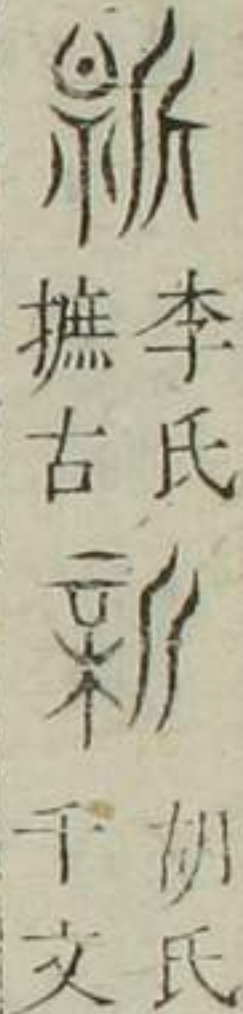 新
李氏
摭古
新
胡氏
千文